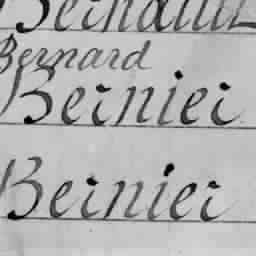 Bernard
Bernier
Bernier